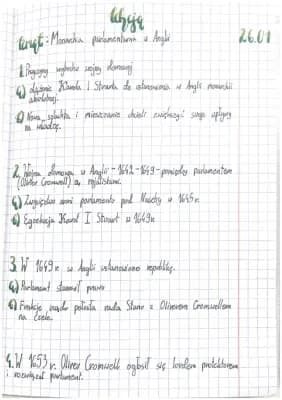 Lekcja
Temat: Monarchia parlamentarna w Anglii 26.01
1. Przyczyny wybuchu wojny domowej
a) dążenie Karola I Stuarta do ustanowienia w Anglii monarchii
absolutnej.
b) Nowa szlachta i mieszczanie chcieli zwiększyć swoje wpływy
na władzę.
2. Wojna domowa w Anglii - 1642-1649 - pomiędzy parlamentem
(Oliver Cromwell) a rojalistami.
a) Zwycięstwo armii parlamentu pod Naseby w 1645r.
b) Egzekucja Karol I Stuart w 1649r.
3. W 1649r. w Anglii ustanowiono republikę.
a) Parlament stanowił prawo
b) Funkcje rządu pełniła rada Stanu z Oliverem Cromwellem
na czele.
4. W 1653r. Oliver Cromwell ogłosił się lordem protektorem
i rozwiązał parlament.